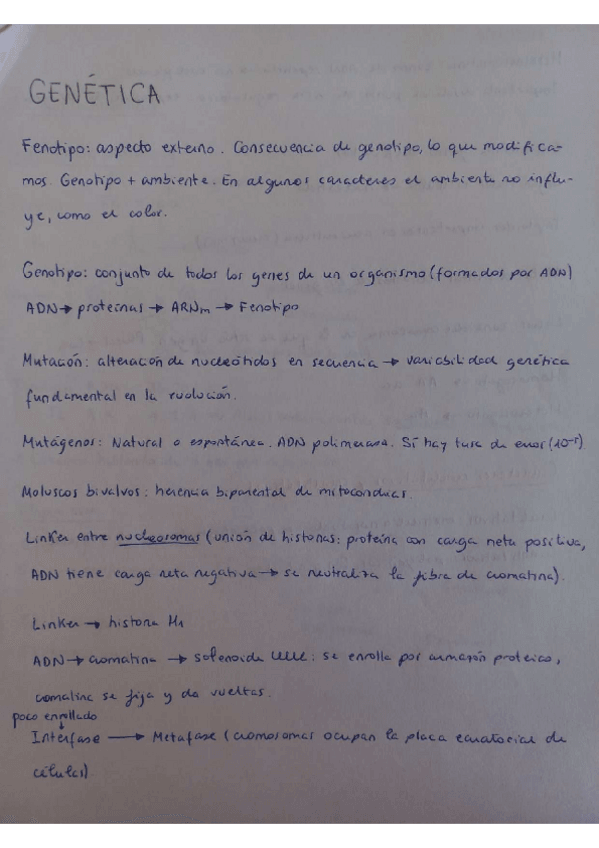 GENÉTICA
Fenotipo: aspecto externo. Consecuencia de genotipo, lo que modifica-
mos. Genotipo + ambiente. En algunos caracteres el ambiente no influ-
ye, como el color.
Genotipo: conjunto de todos los genes de un organismo (formados por ADN)
ADN → proteínas → ARNm → Fenotipo
Mutación: alteración de nucleótidos en secuencia → variabilidad genética
fundamental en la evolución.
Mutágenos: Natural o espontánea. ADN polimerasa. Sí hay tasa de error (10⁻⁵).
Moluscos bivalvos: herencia biparental de mitocondrias.
Linker entre nucleosomas (unión de histonas: proteína con carga neta positiva,
ADN tiene carga neta negativa → se neutraliza la fibra de cromatina).
Linker → histona H1
ADN → cromatina → solenoide: se enrolla por armazón proteico,
cromatina se fija y da vueltas.
poco enrollado
Interfase → Metafase (cromosomas ocupan la placa ecuatorial de
células)